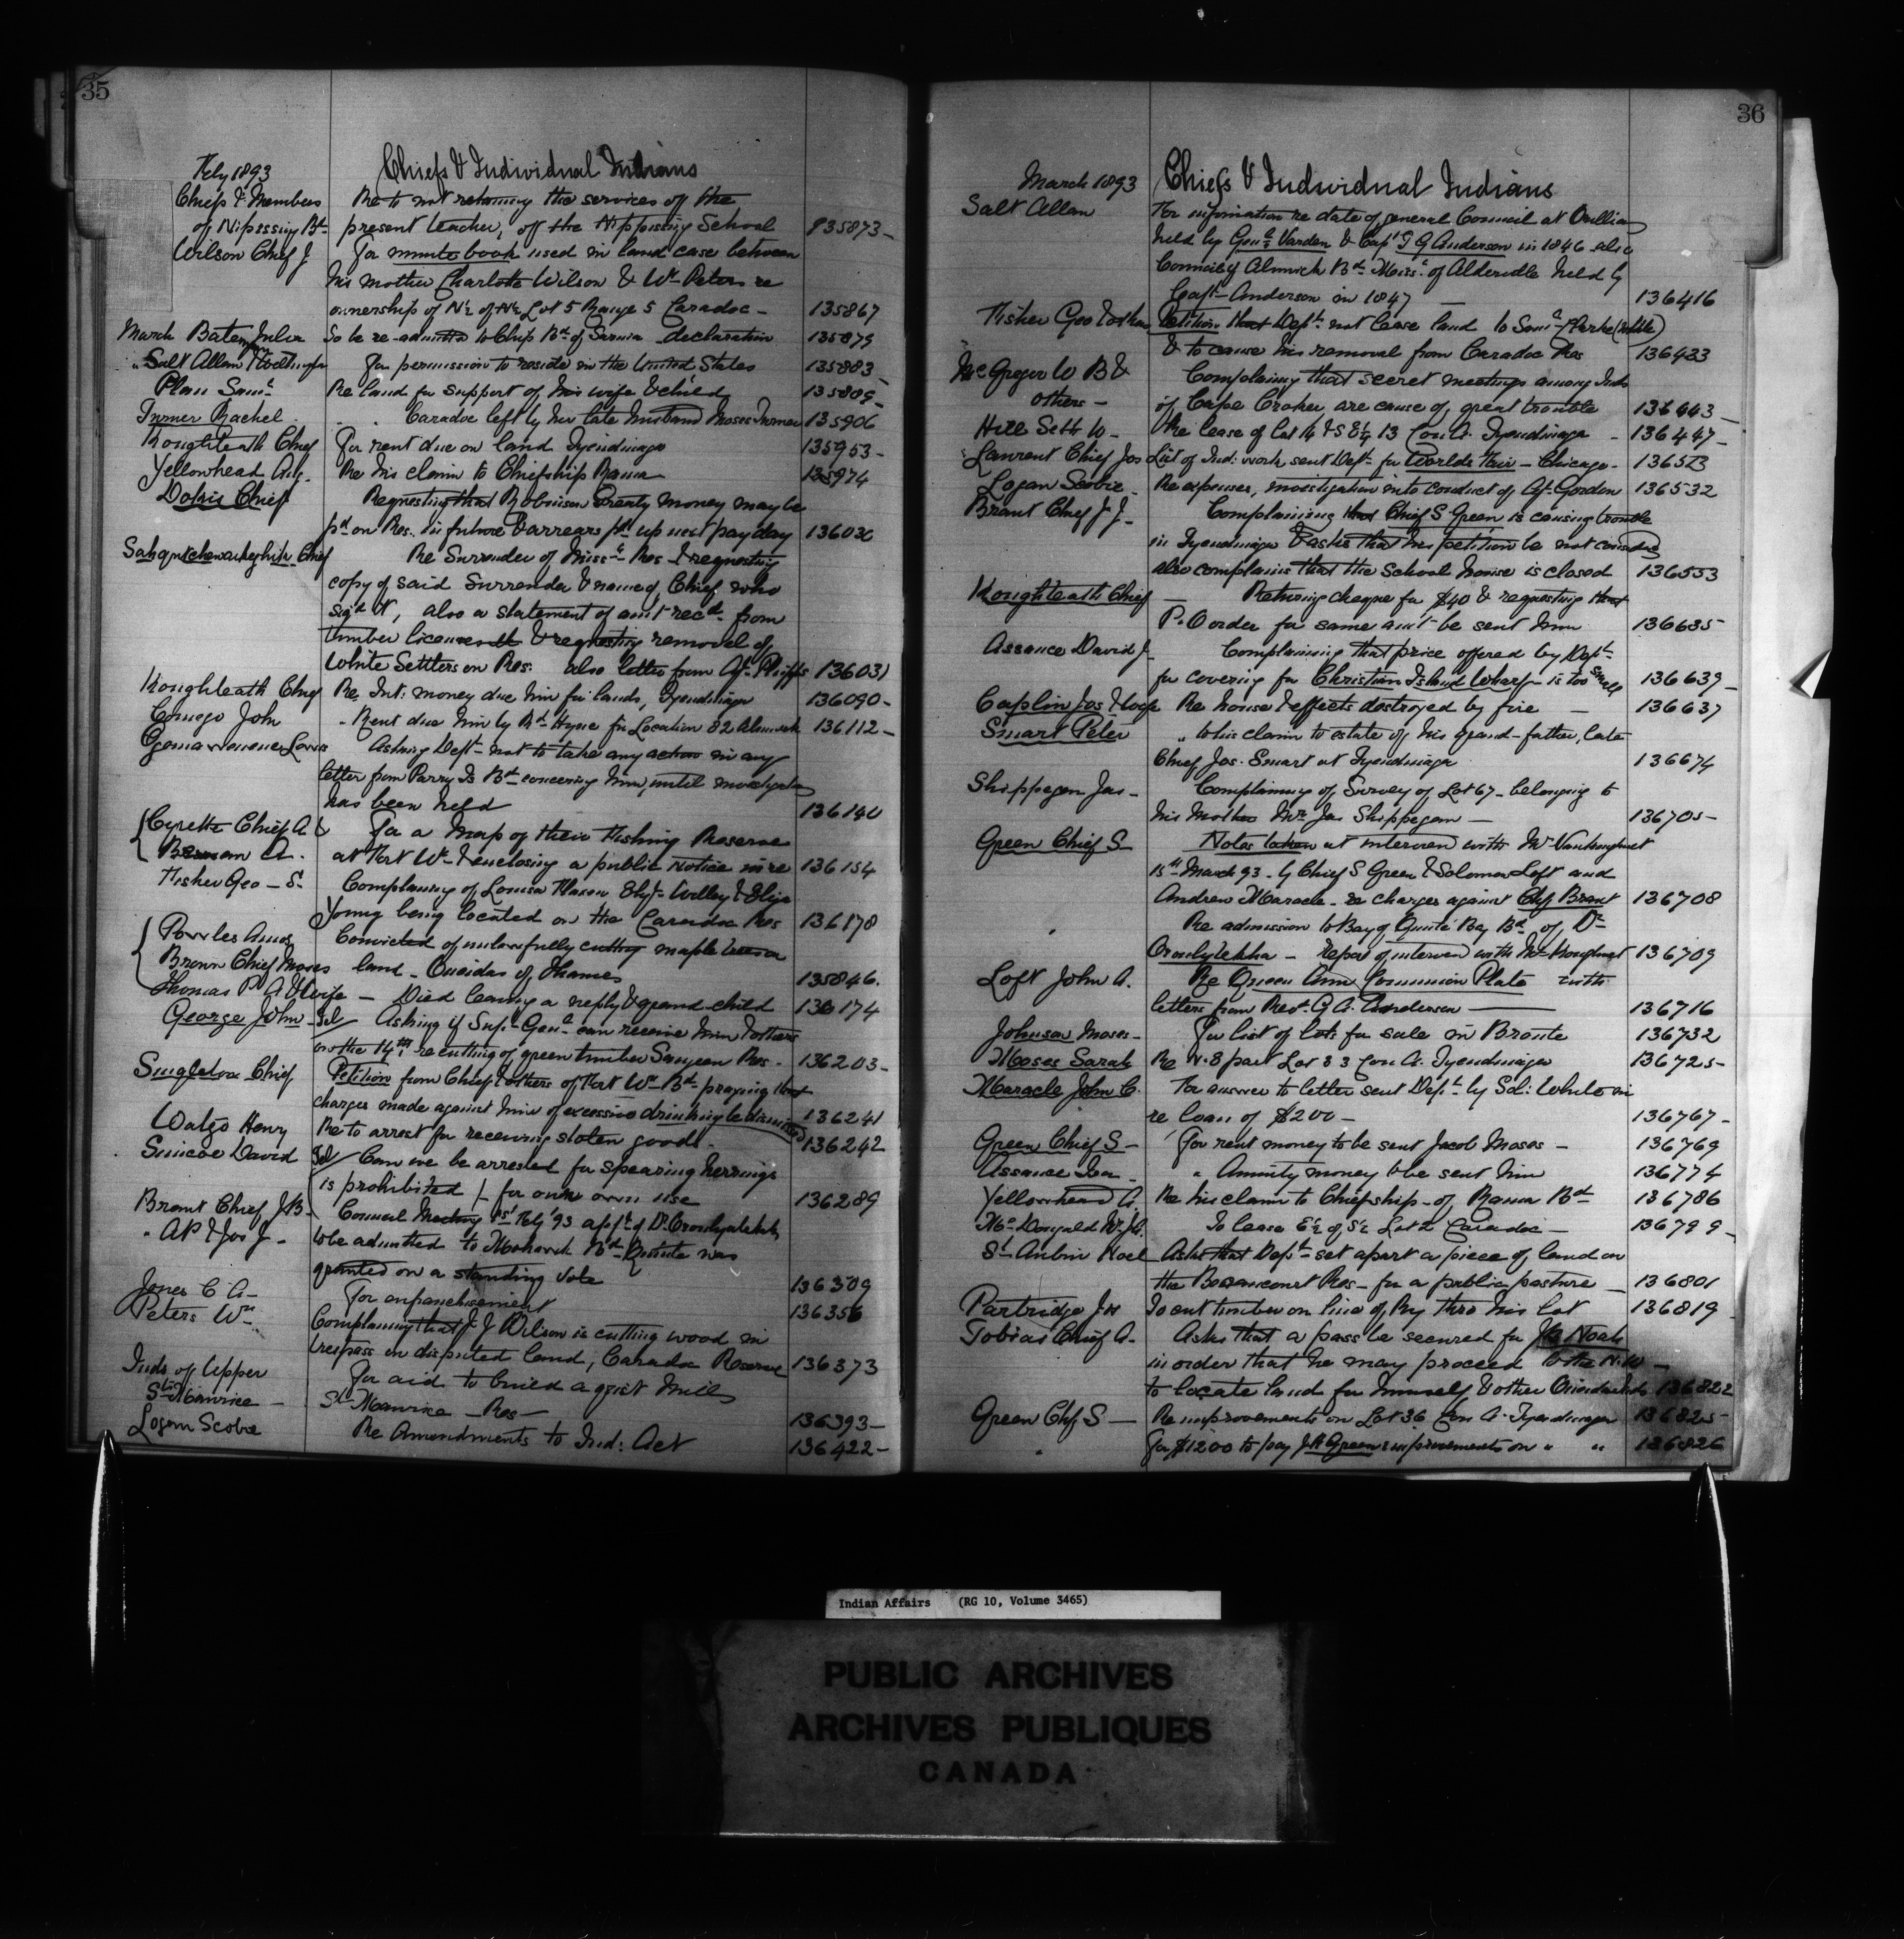 35
Feby 1893 Chiefs & Individual Indians
Chiefs & Members Re to not retaining the services of the
of Nipissing Bd present teacher, of the Nippissing School 135873
Wilson Chief J For minute book used in land case between
his mother Charlotte Wilson & Wm Peters re
ownership of N½ of N½ Lot 5 Range 5 Caradoc 135867
March Bateny Julia To be re-admitted to Chip Bd of Sarnia declaration 135879
" Salt Allan For permission to reside in the United States 135883
Plain Saml Re land for support of his wife & child 135889
Turner Rachel " " Caradoc left by her late husband Moses Turner 135906
Loughleath Chief For rent due on land Tyendinaga 135953
Yellowhead Aug. Re his claim to Chiefship Rama 135974
Dokis Chief Requesting that Robinson Treaty money may be
pd on Res. in future & arrears pd up next pay day 136030
Chief Re Surrender of Missa Res & requesting
copy of said Surrender & names of Chief who
sigd it, also a statement of amt recd from
timber licenses & requesting removal of
White Settlers on Res: also letter from At. Phipps 136031
Loughleath Chief Re Int: money due him for lands, Tyendinaga 136090
Comego John " Rent due him by Bd Hyne for Location 82 Alnwick 136112
Louis Asking Dept not to take any action in any
letter from Parry Is Bd concerning him, until investigation
has been held 136140
Cyrette Chief A & For a Map of their Fishing Reserve
A. at Fort Wm & enclosing a public Notice in re 136154
Fisher Geo S. Complaining of Louisa Mason Willey & Eliza
Young being located on the Caradoc Res 136178
Powles Amos Convicted of unlawfully cutting maple trees on
Brown Chief Moses land - Oneidas of Thames 135846.
Thomas P A & Wife - Died leaving a nephy & grand-child 136174
George John Tel Asking if Sup. Genl can receive him & others
on the 14th re cutting of green timber Saugeen Res. 136203
Singleton Chief Petition from Chief & others of Fort Wm Bd praying that
charges made against him of excessive drinking be dismissed 136241
Watgo Henry Re to arrest for receiving stolen goods. 136242
Simcoe David Tel Can we be arrested for spearing herrings
is prohibited / for our own use 136289
Brant Chief J B. Council Meeting 1st Feby '93 applt of Dr Oronhyatekha
" A P & Jos J. to be admitted to Mohawk Bd Quinte was
granted on a standing Vote 136309
Jones C A For enfranchisement 136356
Peters Wm Complaining that J J Wilson is cutting wood in
trespass on disputed land, Caradoc Reserve 136373
Inds of Upper For aid to build a grist Mill
St Maurice St Maurice Res 136393
Logan Scobie Re Amendments to Ind: Act 136422

36
March 1893 Chiefs & Individual Indians
Salt Allan For information re date of general Council at Orillia
held by Genl Varden & Capt T G Anderson in 1846 also
Council of Alnwick Bd Missa of Alderville held by
Capt Anderson in 1847 136416
Fisher Geo & others Petition that Dept not lease land to Saml
& to cause his removal from Caradoc Res 136423
McGregor W B & Complaing that secret meetings among Inds
others of Cape Croker, are cause of great trouble 136443
Hill Seth W. Re lease of lot 14 & S E¼ 13 Con A. Tyendinaga 136447
Laurent Chief Jos List of Ind: work sent Dept for Worlds Fair - Chicago 136523
Logan Scobie Re expenses, investigation into conduct of At. Gordon 136532
Brant Chief J J. Complaining that Chief S Green is causing trouble
in Tyendinaga & asks that his petition be not considered
also complains that the School house is closed 136553
Loughleath Chief Returning cheque for $40 & requesting that
P.O order for same amt be sent him 136635
Assance David J Complaining that price offered by Dept
for covering for Christian Island Wharf is too small 136639
Caplin Jos & wife Re house & effects destroyed by fire 136637
Smart Peter " to his claim to estate of his grand-father, late
Chief Jos. Smart at Tyendinaga 136674
Shippegen Jas Complaining of Survey of Lot 67 - belonging to
his Mother Mrs Jas Shippegan 136705
Green Chief S Notes taken at interview with Mr Vankoughnet
15th March 93 by Chief S Green & Solomon Loft and
Andrew Maracle re charges against Chf Brant 136708
" Re admission to Bay of Quinte Bay Bd of Dr
Oronhytekha - report of interview with Mr 136709
Loft John A. Re Queen Ann Communion Plate with
letters from Revd G A. Anderson 136716
Johnson Moses For list of lots for sale in Bronte 136732
Moses Sarah Re N. 8 part Lot 33 Con A. Tyendinaga 136725
Maracle John C. For answer to letter sent Dept by Sol: White in
re loan of $200 136767
Green Chief S For rent money to be sent Jacob Moses 136769
Assance " Annuity money to be sent him 136774
Yellowhead A. Re his claim to Chiefship of Rama Bd 136786
McDougald Wm J. To lease E½ of S½ Lot 2 Caradoc 136799
St Aubin Noel Asks that Dept set apart a piece of land on
the Becancourt Res for a public pasture 136801
Partridge J H To cut timber on line of Ry thro his lot 136819
Tobias Chief A. Asks that a pass be secured for Noah
in order that he may proceed to the N. W
to locate land for himself & other Inds 136822
Green Chf S Re improvements on Lot 36 Con A. Tyendinaga 136825
" For $1200 to pay J A Green improvements on " " 136826
Indian Affairs (RG 10, Volume 3465)
PUBLIC ARCHIVES
ARCHIVES PUBLIQUES
CANADA